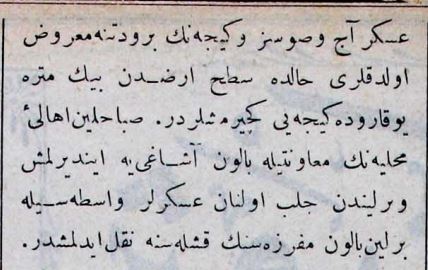 عسكر آج وصوسز وكيجه‌نك برودتنه معروض
اولدقلرى حالده سطح ارضدن بيك متره
يوقاروده كيجه‌يى كچيرمشلردر. صباحلين اهالئ
محليه‌نك معاونتيله بالون آشاغى‌يه اينديرلمش
وبرليندن جلب اولنان عسكرلر واسطه‌سيله
برلين بالون مفرزه‌سنك قشله‌سنه نقل ايدلمشدر.